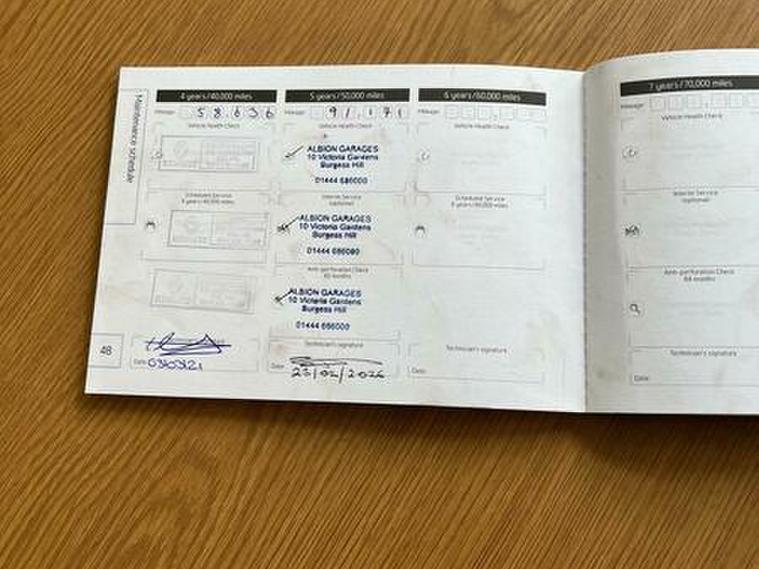 Maintenance schedule
48
4 years/40,000 miles
Mileage: 58,636
Vehicle Health Check
Scheduled Service
4 years/40,000 miles
Date: 03/03/21
5 years/50,000 miles
91,171
Vehicle Health Check
ALBION GARAGES
10 Victoria Gardens
Burgess Hill
01444 686000
Interim Service
(optional)
ALBION GARAGES
10 Victoria Gardens
Burgess Hill
01444 686000
Anti-perforation Check
ALBION GARAGES
10 Victoria Gardens
Burgess Hill
01444 686000
Technician's signature
Date: 23/02/2026
6 years/60,000 miles
Mileage:
Vehicle Health Check
Scheduled Service
6 years/60,000 miles
Technician's signature
Date:
7 years/70,000 miles
Mileage:
Vehicle Health Check
Interim Service
(optional)
Anti-perforation Check
84 months
Technician's signature
Date: